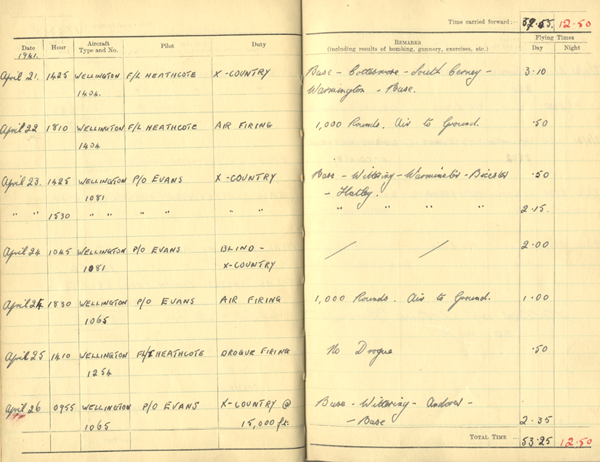 Time carried forward:- 39.55 12.50
Date Hour Aircraft Type and No. Pilot Duty REMARKS (including results of bombing, gunnery, exercises, etc.) Flying Times
1941. Day Night
April 21. 1425 WELLINGTON F/L HEATHCOTE X-COUNTRY Base - Cottesmore - South Cerney - 3.10
1404. Warmington - Base.
April 22 1810 WELLINGTON F/L HEATHCOTE AIR FIRING 1,000 Rounds. Air to Ground. .50
1404
April 23. 1425 WELLINGTON P/O EVANS X-COUNTRY Base - Wittering - Warminster - Bicester .50
1081 - Hatley.
" " 1530 " " " " " " " " " " 2.15.
April 24 1045 WELLINGTON P/O EVANS BLIND - / / 2.00
1081 X-COUNTRY
April 24. 1830 WELLINGTON P/O EVANS AIR FIRING 1,000 Rounds. Air to Ground. 1.00
1065
April 25 1410 WELLINGTON HEATHCOTE DROGUE FIRING No Drogue .50
1254
April 26 0955 WELLINGTON P/O EVANS X-COUNTRY @ Base - Wittering - Andover -
1065 15,000 ft. - Base 2.35
TOTAL TIME 53.25 12.50